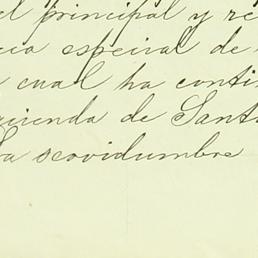 el principal y re
cia espeival de
cual ha conti
cienda de Sant
la scovidumbre